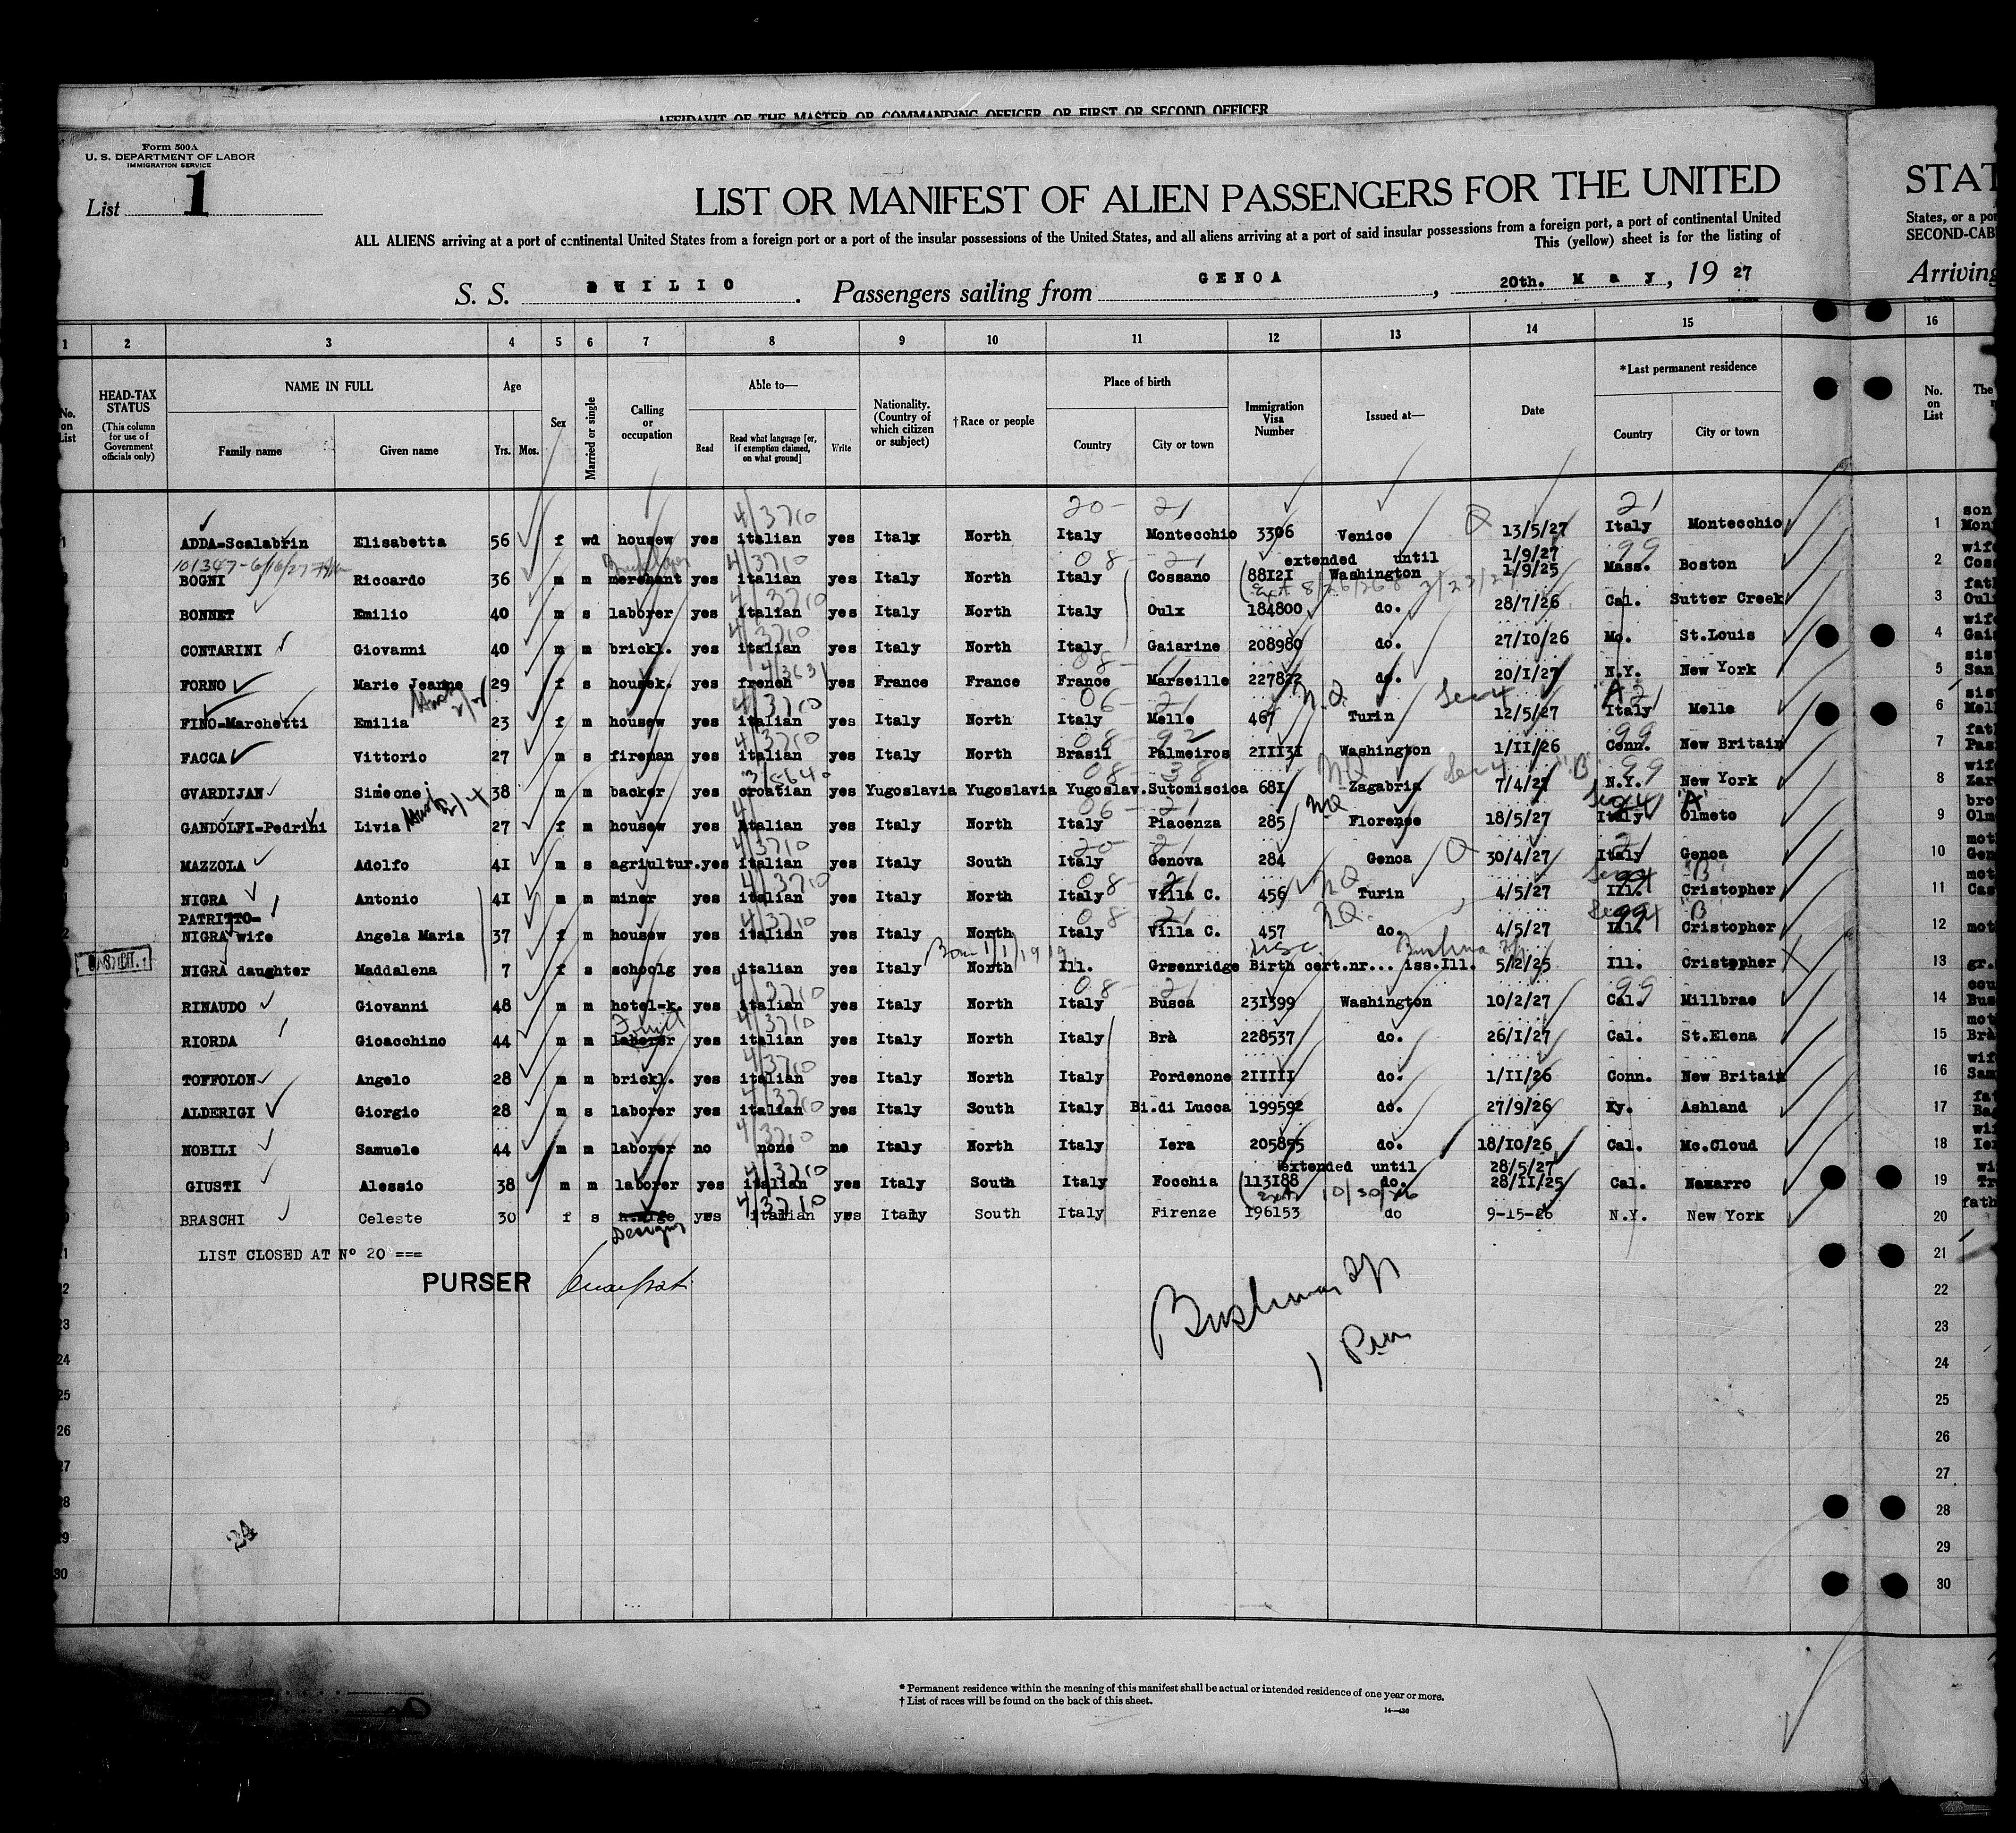 AFFIDAVIT OF THE MASTER OR COMMANDING OFFICER, OR FIRST OR SECOND OFFICER
Form 500A
U. S. DEPARTMENT OF LABOR
IMMIGRATION SERVICE
List 1
LIST OR MANIFEST OF ALIEN PASSENGERS FOR THE UNITED
STAT
ALL ALIENS arriving at a port of continental United States from a foreign port or a port of the insular possessions of the United States, and all aliens arriving at a port of said insular possessions from a foreign port, a port of continental United
States, or a po
This (yellow) sheet is for the listing of
SECOND-CAB
S. S. DUILIO. Passengers sailing from GENOA, 20th. May, 1927
Arriving
1 2 3 4 5 6 7 8 9 10 11 12 13 14 15 16
No. on List
HEAD-TAX STATUS (This column for use of Government officials only)
NAME IN FULL Family name Given name
Age Yrs. Mos.
Sex
Married or single
Calling or occupation
Able to— Read Read what language [or, if exemption claimed, on what ground] Write
Nationality. (Country of which citizen or subject)
†Race or people
Place of birth Country City or town
Immigration Visa Number
Issued at—
Date
*Last permanent residence Country City or town
No. on List
The
20- 21 21
4/3710
1 ADDA-Scalabrin Elisabetta 56 f wd housew yes italian yes Italy North Italy Montecchio 3306 Venice 13/5/27 Italy Montecchio 1 son Mon
101347-6/16/27 4/3710 08- 21 extended until 1/9/27 99
BOGNI Riccardo 36 m m merchant yes italian yes Italy North Italy Cossano (88121 Washington 1/9/25 Mass. Boston 2 wife Cos
4/3710 Ext 8/26/26
BONNET Emilio 40 m s laborer yes italian yes Italy North Italy Oulx 184800 do. 28/7/26 Cal. Sutter Creek 3 fath Oul
4/3710
CONTARINI Giovanni 40 m m brickl. yes italian yes Italy North Italy Gaiarine 208980 do. 27/10/26 Mo. St.Louis 4 wife Gai
4/3631 08-
FORNO Marie Jeanne 29 f s housek. yes french yes France France France Marseille 227822 do. 20/1/27 N.Y. New York 5 sis San
4/3710 06- 21 N.Q. Sec 4 "A" 21
FINO-Marchetti Emilia 23 f m housew yes italian yes Italy North Italy Melle 467 Turin 12/5/27 Italy Melle 6 sis Mel
4/3710 08- 92 99
FACCA Vittorio 27 m s fireman yes italian yes Italy North Brasil Palmeiros 211131 Washington 1/11/26 Conn. New Britain 7 fat Pas
08- 38 NQ Sec 4 "B" 99
GVARDIJAN Simeone 38 m m backer yes croatian yes Yugoslavia Yugoslavia Yugoslav. Sutomiscica 681 Zagabria 7/4/27 N.Y. New York 8 wif Zar
06- 21 NQ Sec 4 "A"
GANDOLFI-Pedrini Livia 27 f m housew yes italian yes Italy North Italy Piacenza 285 Florence 18/5/27 Italy Olmeto 9 bro Olm
4/3710 20- 21 21
MAZZOLA Adolfo 41 m s agriultur. yes italian yes Italy South Italy Genova 284 Genoa 30/4/27 Italy Genoa 10 mot Gen
4/3710 08- 21 NQ "B"
NIGRA Antonio 41 m m miner yes italian yes Italy North Italy Villa C. 456 Turin 4/5/27 Ill. Cristopher 11 mot Cas
PATRITTO- 4/3710 08- 21 N.Q. "B"
NIGRA wife Angela Maria 37 f m housew yes italian yes Italy North Italy Villa C. 457 do. 4/5/27 Ill. Cristopher 12 mot
Born 1/1/1919 USC.
NIGRA daughter Maddalena 7 f s schoolg yes italian yes Italy North Ill. Greenridge Birth cert.nr... iss.Ill. 5/2/25 Ill. Cristopher 13 gr.
4/3710 08- 21 99
RINAUDO Giovanni 48 m m hotel-k. yes italian yes Italy North Italy Busca 231399 Washington 10/2/27 Cal. Millbrae 14 cou Bus
4/3710
RIORDA Gioacchino 44 m m laborer yes italian yes Italy North Italy Brà 228537 do. 26/1/27 Cal. St.Elena 15 mot Brà
4/3710
TOFFOLON Angelo 28 m m brickl. yes italian yes Italy North Italy Pordenone 211111 do. 1/11/26 Conn. New Britain 16 wif Sam
4/3710
ALDERIGI Giorgio 28 m s laborer yes italian yes Italy South Italy Bi.di Lucca 199592 do. 27/9/26 Ky. Ashland 17 fat Ba
4/3710
NOBILI Samuele 44 m m laborer no none no Italy North Italy Iera 205855 do. 18/10/26 Cal. Mc.Cloud 18 wif Ie
4/3710 extended until 28/5/27
GIUSTI Alessio 38 m m laborer yes italian yes Italy South Italy Focchia (113188 do. 28/11/25 Cal. Nazarro 19 wi Tr
4/3710 Ext. 10/30/26
BRASCHI Celeste 30 f s yes italian yes Italy South Italy Firenze 196153 do 9-15-26 N.Y. New York 20 fath
Design
LIST CLOSED AT Nº 20 === 21
PURSER
22
23 23
24 24
25 25
26 26
27 27
28 28
29 29
30 30
* Permanent residence within the meaning of this manifest shall be actual or intended residence of one year or more.
† List of races will be found on the back of this sheet.